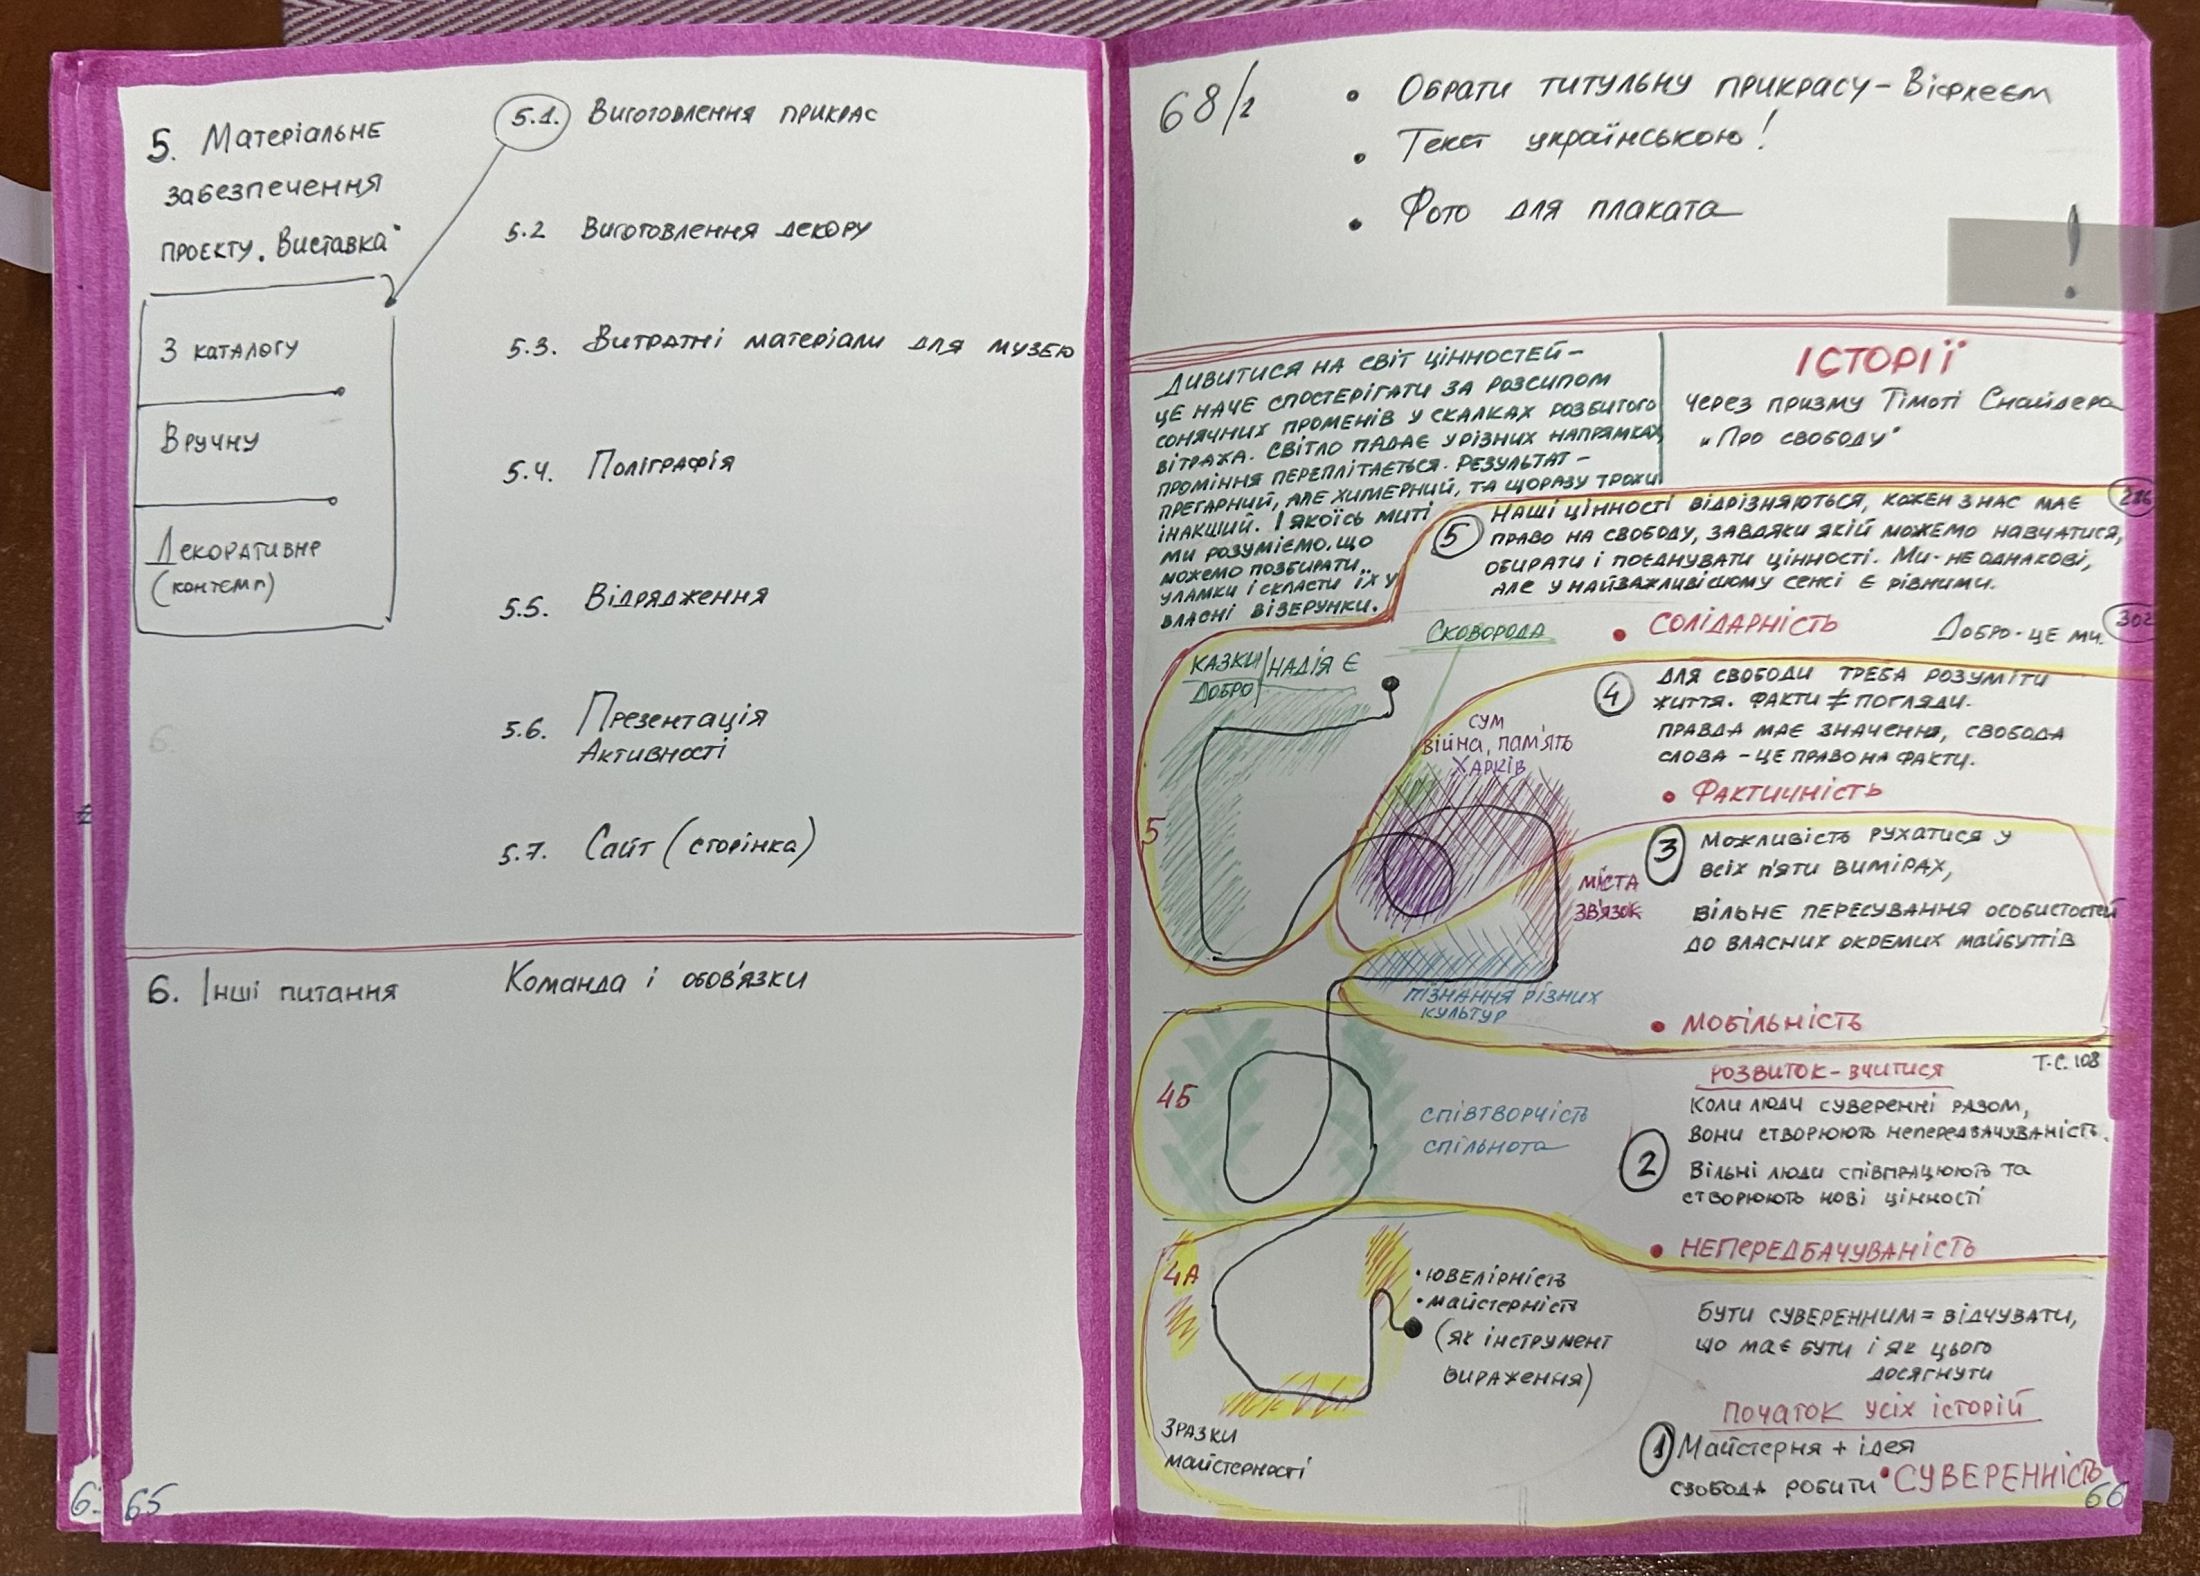 5. Матеріальне
забезпечення
проєкту „Виставка"
З каталогу
Вручну
Декоративне
(контемп)
5.1. Виготовлення прикрас
5.2 Виготовлення декору
5.3. Витратні матеріали для музею
5.4. Поліграфія
5.5. Відрядження
5.6. Презентація
Активності
5.7. Сайт (сторінка)
6.
6. Інші питання
Команда і обов'язки
65
68/2
• Обрати титульну прикрасу – Віфлеєм
• Текст українською!
• Фото для плаката
!
Дивитися на світ цінностей –
це наче спостерігати за розсипом
сонячних променів у скалках розбитого
вітража. Світло падає у різних напрямках,
проміння переплітається. Результат –
прегарний, але химерний, та щоразу трохи
інакший. І якоїсь миті
ми розуміємо, що
можемо позбирати
уламки і скласти їх у
власні візерунки.
ІСТОРІЇ
через призму Тімоті Снайдера
„Про свободу"
5 Наші цінності відрізняються, кожен з нас має
право на свободу, завдяки якій можемо навчатися,
обирати і поєднувати цінності. Ми - не однакові,
але у найважливішому сенсі є рівними.
• Солідарність
Добро - це ми.
302
Сковорода
казки/надія є
добро
4 Для свободи треба розуміти
життя. Факти ≠ погляди.
Правда має значення, свобода
слова – це право на факти.
• Фактичність
сум
війна, пам'ять
Харків
5
3 Можливість рухатися у
всіх п'яти вимірах,
вільне пересування особистостей
до власних окремих майбуттів
• Мобільність
міста
зв'язок
пізнання різних
культур
Т-С. 108
Розвиток – вчитися
Коли люди суверенні разом,
вони створюють непередбачуваність.
2 Вільні люди співпрацюють та
створюють нові цінності
• Непередбачуваність
4Б
співтворчість
спільнота
4А
• ювелірність
• майстерність
(як інструмент
вираження)
Зразки
майстерності
Бути суверенним = відчувати,
що має бути і як цього
досягнути
Початок усіх історій
1 Майстерня + ідея
свобода робити • СУВЕРЕННІСТЬ
66